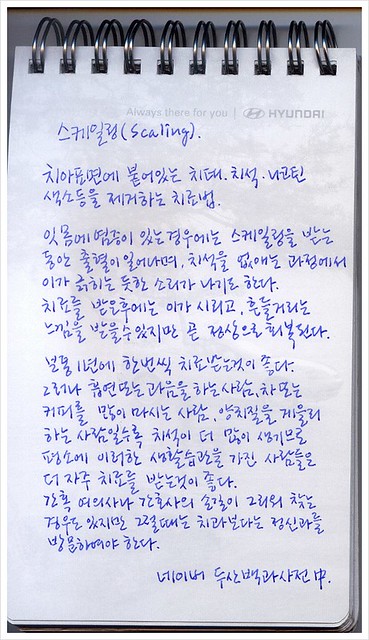 Always there for you | HYUNDAI
스케일링(Scaling).
치아표면에 붙어있는 치태. 치석. 니코틴
색소등을 제거하는 치료법.
잇몸에 염증이 있는경우에는 스케일링을 받는
동안 출혈이 일어나며, 치석을 없애는 과정에서
이가 긁히는 듯한 소리가 나기도 한다.
치료를 받은후에는 이가 시리고, 흔들거리는
느낌을 받을수있지만 곧 정상으로 회복된다.
보통 1년에 한번씩 치료받는것이 좋다.
그러나 흡연또는 과음을 하는사람, 차또는
커피를 많이 마시는 사람, 양치질을 게을리
하는 사람일수록 치석이 더 많이 생기므로
평소에 이러한 생활습관을 가진 사람들은
더 자주 치료를 받는것이 좋다.
간혹 여의사나 간호사의 손길이 그리워 찾는
경우도 있지만 그럴때는 치과보다는 정신과를
방문하여야 한다.
네이버 두산백과사전 中.